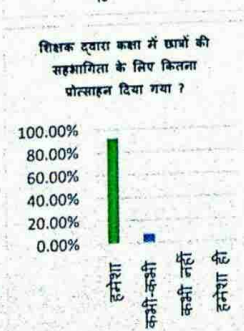 शिक्षक द्वारा कक्षा में छात्रों की
सहभागिता के लिए कितना
प्रोत्साहन दिया गया ?
100.00%
80.00%
60.00%
40.00%
20.00%
0.00%
हमेशा
कभी-कभी
कभी नहीं
हमेशा ही